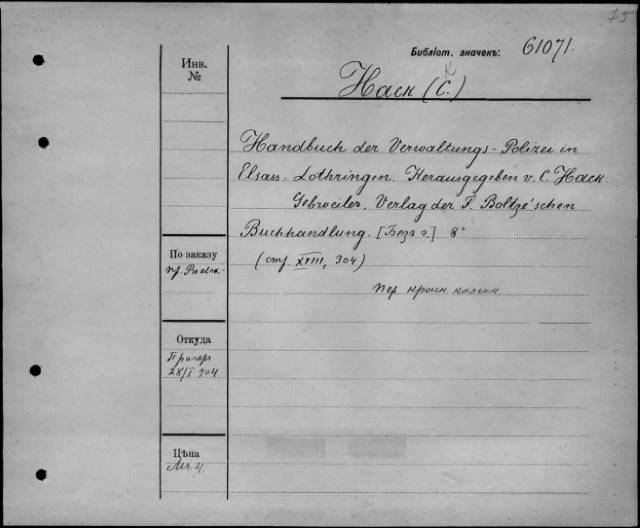 75
Библіот. значекъ: 61071.
Инв.
№
Hack (C.)
Handbuch der Verwaltungs-Polizei in
Elsass-Lothringen. Herausgegeben v. C. Hack.
Gebweiler, Verlag der F. Boltze'schen
Buchhandlung. [Безъ г.] 8°
По заказу
(стр. XVIII, 304)
пр.
пер. красн.
Откуда
28/I 904
Цѣна
Мк. 4.